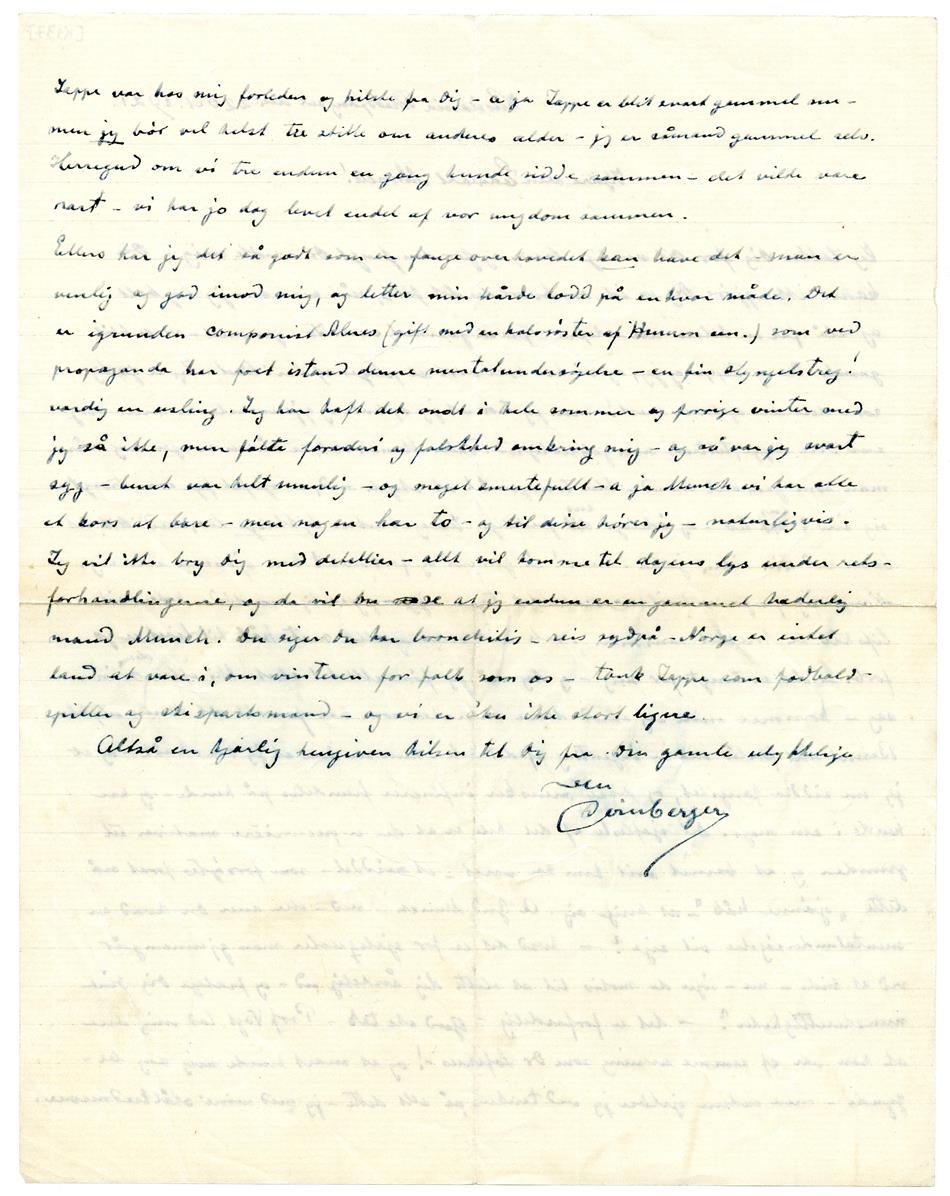 Zappe var hos mig forleden og hilste fra Dig – a ja Zappe er blit svart gammel nu –
men jeg bör vel helst tie stille om anderes alder – jeg er såmænd gammel selv.
Herregud om vi tre endnu en gang kunde sidde sammen – det vilde vare
rart – vi har jo dog levet endel af vor ungdom sammen.
Ellers har jeg det så godt som en fange overhovedet kan have det – man er
venlig og god imod mig, og letter min hårde lodd på enhver måde. Det
er igrunden componist Alnes (gift med en halvsöster af Hennum sen.) som ved
propaganda har fået istand denne mentalundersögelse – en fin slyngelstreg!
vardig en usling. Jeg har haft det ondt i hele sommer og forrige vinter med
jeg så ikke, men fölte foraderi og falskhed omkring mig – og så var jeg svart
syg – benet var helt umulig – og meget smertefullt – a ja Munch vi har alle
et kors at bare – men nogen har to – og til disse hörer jeg – naturligvis.
Jeg vil ikke bry Dig med detallier – allt vil komme til dagens lys under rets-
forhandlingerne, og da vil at jeg endnu er en gammel haderlig
mand Munch. Du siger Du har bronchitis – reis sydpå – Norge er intet
land at vare i, om vinteren for folk som os – tank Zappe som fodbold-
spiller og skisportsmand – og vi er åku ikke stort ligere.
Altså en kjarlig hengiven hilsen til Dig fra Din gamle ulykkelige
ven
[K137]